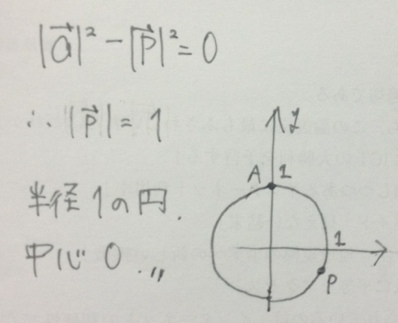 |a⃗|² − |p⃗|² = 0
∴ |p⃗| = 1
半径1の円.
中心 O. 〃
y
A 1
1
P